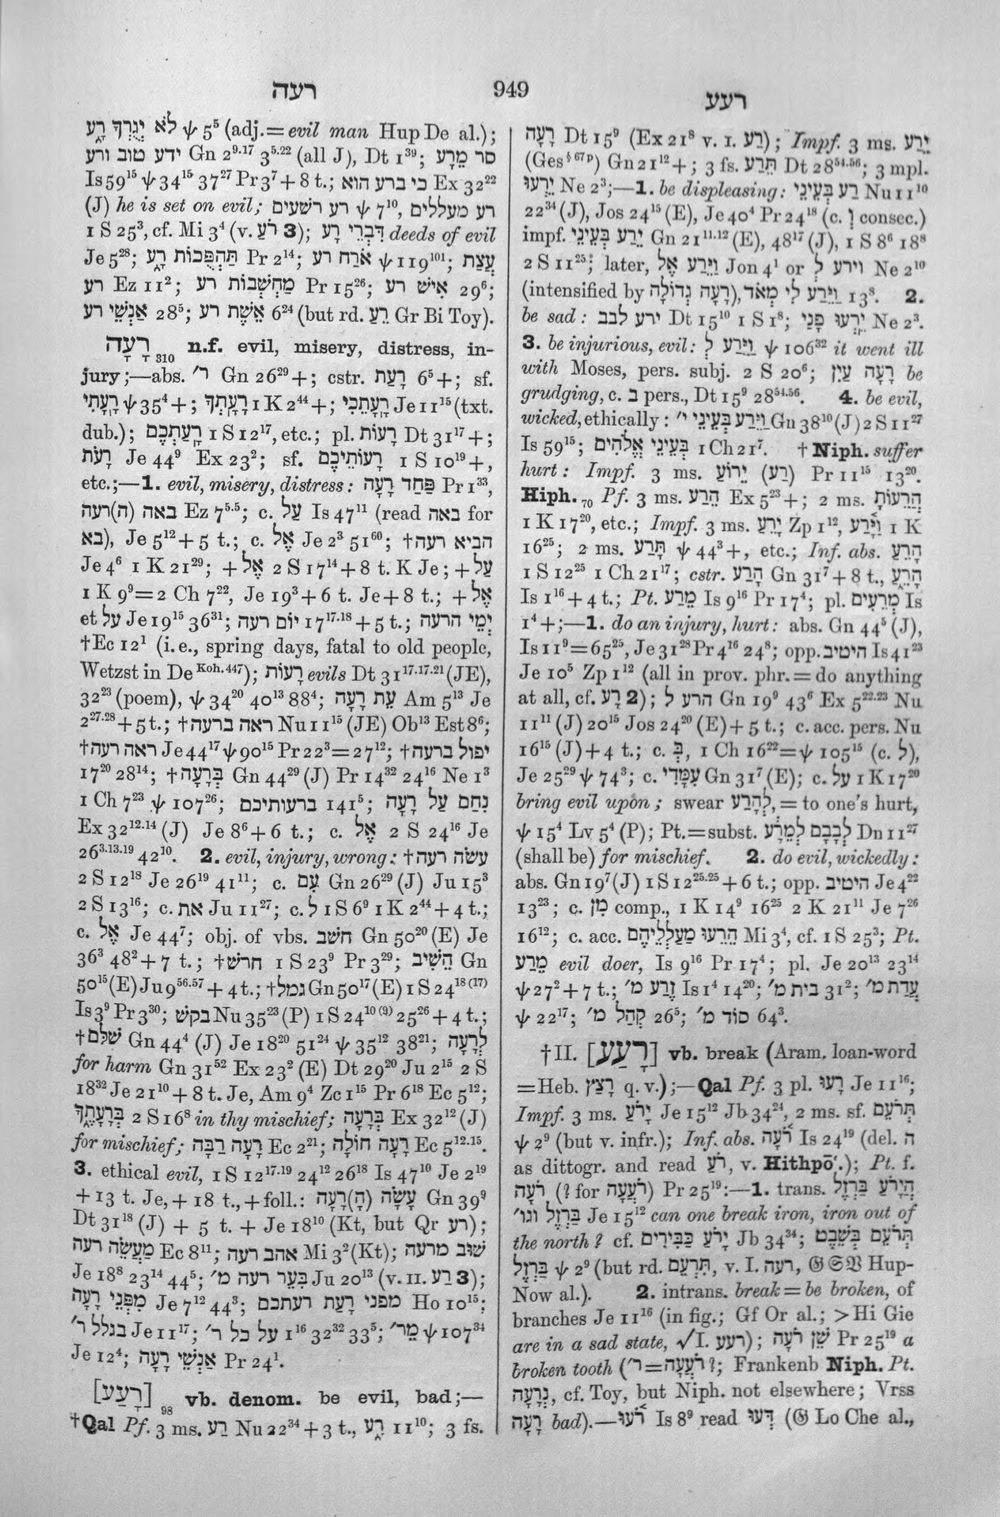 רעה
949
רעע
לֹא יְגֻרְךָ רָע ψ 5⁵ (adj.=evil man HupDe al.);
סר מֵרָע Gn 2⁹·¹⁷ 3⁵·²² (all J), Dt 1³⁹; ידע טוב ורע
Is 59¹⁵ ψ 34¹⁵ 37²⁷ Pr 3⁷ + 8 t.; כי ברע הוא Ex 32²²
(J) he is set on evil; רע רשעים ψ 7¹⁰, רע מעללים
1 S 25³, cf. Mi 3⁴ (v. רֹעַ 3); דִּבְרֵי רָע deeds of evil
Je 5²⁸; תַּהְפֻּכוֹת רָע Pr 2¹⁴; אֹרַח רע ψ 119¹⁰¹; עֲצַת
רע Ez 11²; מַחְשְׁבוֹת רע Pr 15²⁶; אִישׁ רע 29⁶;
אַנְשֵׁי רע 28⁵; אֵשֶׁת רע 6²⁴ (but rd. רֵעַ Gr Bi Toy).
רָעָה 310 n.f. evil, misery, distress, in-
jury;—abs. ר׳ Gn 26²⁹ +; cstr. רָעַת 6⁵ +; sf.
רָעָתִי ψ 35⁴ +; רָעָתְךָ 1 K 2⁴⁴ +; רָעָתֵכִי Je 11¹⁵ (txt.
dub.); רָעַתְכֶם 1 S 12¹⁷, etc.; pl. רָעוֹת Dt 31¹⁷ +;
רָעֹת Je 44⁹ Ex 23²; sf. רָעוֹתֵיכֶם 1 S 10¹⁹ +,
etc.;—1. evil, misery, distress: פַּחַד רָעָה Pr 1³³,
באה (ה)רעה Ez 7⁵·⁵; c. עַל Is 47¹¹ (read באה for
בא), Je 5¹² + 5 t.; c. אֶל Je 2³ 51⁶⁰; †הביא רעה
Je 4⁶ 1 K 21²⁹; + אֶל 2 S 17¹⁴ + 8 t. K Je; + עַל
1 K 9⁹ = 2 Ch 7²², Je 19³ + 6 t. Je + 8 t.; + אֶל
et על Je 19¹⁵ 36³¹; יום רעה 17¹⁷·¹⁸ + 5 t.; יְמֵי הרעה
†Ec 12¹ (i.e., spring days, fatal to old people,
Wetzst in De Koh. 447); רָעוֹת evils Dt 31¹⁷·¹⁷·²¹ (JE),
32²³ (poem), ψ 34²⁰ 40¹³ 88⁴; עֵת רָעָה Am 5¹³ Je
2²⁷·²⁸ + 5 t.; †ראה ברעה Nu 11¹⁵ (JE) Ob¹³ Est 8⁶;
†ראה רעה Je 44¹⁷ ψ 90¹⁵ Pr 22³ = 27¹²; †יפול ברעה
17²⁰ 28¹⁴; †בְּרָעָה Gn 44²⁹ (J) Pr 14³² 24¹⁶ Ne 1³
1 Ch 7²³ ψ 107²⁶; ברעותיכם 141⁵; נִחַם עַל רָעָה
Ex 32¹²·¹⁴ (J) Je 8⁶ + 6 t.; c. אֶל 2 S 24¹⁶ Je
26³·¹³·¹⁹ 42¹⁰. 2. evil, injury, wrong: †עשׂה רעה
2 S 12¹⁸ Je 26¹⁹ 41¹¹; c. עִם Gn 26²⁹ (J) Ju 15³
2 S 13¹⁶; c. את Ju 11²⁷; c. לְ 1 S 6⁹ 1 K 2⁴⁴ + 4 t.;
c. אֶל Je 44⁷; obj. of vbs. חשׁב Gn 50²⁰ (E) Je
36³ 48² + 7 t.; †חרשׁ 1 S 23⁹ Pr 3²⁹; הֵשִׁיב Gn
50¹⁵ (E) Ju 9⁵⁶·⁵⁷ + 4 t.; †גמל Gn 50¹⁷ (E) 1 S 24¹⁸ ⁽¹⁷⁾
Is 3⁹ Pr 3³⁰; בקשׁ Nu 35²³ (P) 1 S 24¹⁰ ⁽⁹⁾ 25²⁶ + 4 t.;
†שׁלּם Gn 44⁴ (J) Je 18²⁰ 51²⁴ ψ 35¹² 38²¹; לְרָעָה
for harm Gn 31⁵² Ex 23² (E) Dt 29²⁰ Ju 2¹⁵ 2 S
18³² Je 21¹⁰ + 8 t. Je, Am 9⁴ Zc 1¹⁵ Pr 6¹⁸ Ec 5¹²;
בְּרָעָתֶךָ 2 S 16⁸ in thy mischief; בְּרָעָה Ex 32¹² (J)
for mischief; רָעָה רַבָּה Ec 2²¹; רָעָה חוֹלָה Ec 5¹²·¹⁵.
3. ethical evil, 1 S 12¹⁷·¹⁹ 24¹² 26¹⁸ Is 47¹⁰ Je 2¹⁹
+ 13 t. Je, + 18 t., + foll.: עָשָׂה (הָ)רָעָה Gn 39⁹
Dt 31¹⁸ (J) + 5 t. + Je 18¹⁰ (Kt, but Qr רע);
מַעֲשֵׂה רעה Ec 8¹¹; אהב רעה Mi 3² (Kt); שׁוּב מרעה
Je 18⁸ 23¹⁴ 44⁵; בִּעֵר רעה מ׳ Ju 20¹³ (v. II. רַע 3);
מִפְּנֵי רָעָה Je 7¹² 44³; מפני רָעַת רעתכם Ho 10¹⁵;
בגלל ר׳ Je 11¹⁷; על כל ר׳ 1¹⁶ 32³² 33⁵; מֵר׳ ψ 107³⁴
Je 12⁴; אַנְשֵׁי רָעָה Pr 24¹.
[רָעַע] 98 vb. denom. be evil, bad;—
†Qal Pf. 3 ms. רַע Nu 22³⁴ + 3 t., רָע 11¹⁰; 3 fs.
רָעָה Dt 15⁹ (Ex 21⁸ v. I. רע); Impf. 3 ms. יֵרַע
(Ges § 67 p) Gn 21¹² +; 3 fs. תֵּרַע Dt 28⁵⁴·⁵⁶; 3 mpl.
יֵרְעוּ Ne 2³;—1. be displeasing: רַע בְּעֵינֵי Nu 11¹⁰
22³⁴ (J), Jos 24¹⁵ (E), Je 40⁴ Pr 24¹⁸ (c. וְ consec.)
impf. יֵרַע בְּעֵינֵי Gn 21¹¹·¹² (E), 48¹⁷ (J), 1 S 8⁶ 18⁸
2 S 11²⁵; later, וַיֵּרַע אֶל Jon 4¹ or וירע לְ Ne 2¹⁰
(intensified by רָעָה גְדוֹלָה), וַיֵּרַע לִי מְאֹד 13⁸. 2.
be sad: ירע לבב Dt 15¹⁰ 1 S 1⁸; יֵרְעוּ פָנַי Ne 2³.
3. be injurious, evil: וַיֵּרַע לְ ψ 106³² it went ill
with Moses, pers. subj. 2 S 20⁶; רָעָה עַיִן be
grudging, c. בְּ pers., Dt 15⁹ 28⁵⁴·⁵⁶. 4. be evil,
wicked, ethically: וַיֵּרַע בְּעֵינֵי י׳ Gn 38¹⁰ (J) 2 S 11²⁷
Is 59¹⁵; בְּעֵינֵי אֱלֹהִים 1 Ch 21⁷. †Niph. suffer
hurt: Impf. 3 ms. יֵרוֹעַ (רע) Pr 11¹⁵ 13²⁰.
Hiph. 70 Pf. 3 ms. הֵרַע Ex 5²³ +; 2 ms. הֲרֵעוֹתָ
1 K 17²⁰, etc.; Impf. 3 ms. יָרֵעַ Zp 1¹², וַיָּרַע 1 K
16²⁵; 2 ms. תָּרַע ψ 44³ +, etc.; Inf. abs. הָרֵעַ
1 S 12²⁵ 1 Ch 21¹⁷; cstr. הָרַע Gn 31⁷ + 8 t., הָרֵעַ
Is 1¹⁶ + 4 t.; Pt. מֵרַע Is 9¹⁶ Pr 17⁴; pl. מְרֵעִים Is
1⁴ +;—1. do an injury, hurt: abs. Gn 44⁵ (J),
Is 11⁹ = 65²⁵, Je 31²⁸ Pr 4¹⁶ 24⁸; opp. היטיב Is 41²³
Je 10⁵ Zp 1¹² (all in prov. phr. = do anything
at all, cf. רַע 2); הרע לְ Gn 19⁹ 43⁶ Ex 5²²·²³ Nu
11¹¹ (J) 20¹⁵ Jos 24²⁰ (E) + 5 t.; c. acc. pers. Nu
16¹⁵ (J) + 4 t.; c. בְּ, 1 Ch 16²² = ψ 105¹⁵ (c. לְ),
Je 25²⁹ ψ 74³; c. עִמָּדִי Gn 31⁷ (E); c. על 1 K 17²⁰
bring evil upon; swear לְהָרַע, = to one's hurt,
ψ 15⁴ Lv 5⁴ (P); Pt. = subst. לְבָבָם לְמֵרָע Dn 11²⁷
(shall be) for mischief. 2. do evil, wickedly:
abs. Gn 19⁷ (J) 1 S 12²⁵·²⁵ + 6 t.; opp. היטיב Je 4²²
13²³; c. מִן comp., 1 K 14⁹ 16²⁵ 2 K 21¹¹ Je 7²⁶
16¹²; c. acc. הֵרֵעוּ מַעַלְלֵיהֶם Mi 3⁴, cf. 1 S 25³; Pt.
מֵרַע evil doer, Is 9¹⁶ Pr 17⁴; pl. Je 20¹³ 23¹⁴
ψ 27² + 7 t.; זֶרַע מ׳ Is 1⁴ 14²⁰; בית מ׳ 31²; עֲדַת מ׳
ψ 22¹⁷; קְהַל מ׳ 26⁵; סוֹד מ׳ 64³.
†II. [רָעַע] vb. break (Aram. loan-word
=Heb. רָצַץ q.v.);—Qal Pf. 3 pl. רָעוּ Je 11¹⁶;
Impf. 3 ms. יָרֹעַ Je 15¹² Jb 34²⁴, 2 ms. sf. תְּרֹעֵם
ψ 2⁹ (but v. infr.); Inf. abs. רֹעָה Is 24¹⁹ (del. ה
as dittogr. and read רֹעַ, v. Hithpō‘.); Pt. f.
רֹעָה (? for רֹעֲעָה) Pr 25¹⁹:—1. trans. הֲיָרֹעַ בַּרְזֶל
בַּרְזֶל וגו׳ Je 15¹² can one break iron, iron out of
the north? cf. יָרֹעַ כַּבִּירִים Jb 34³⁴; תְּרֹעֵם בְּשֵׁבֶט
בַּרְזֶל ψ 2⁹ (but rd. תִּרְעֵם, v. I. רעה, 𝔊 𝔖 𝔙 Hup-
Now al.). 2. intrans. break = be broken, of
branches Je 11¹⁶ (in fig.; Gf Or al.; > Hi Gie
are in a sad state, √ I. רעע); שֵׁן רֹעָה Pr 25¹⁹ a
broken tooth (ר׳=רֹעֲעָה?; Frankenb Niph. Pt.
נְרָעָה, cf. Toy, but Niph. not elsewhere; Vrss
רָעָה bad).—רֹעוּ Is 8⁹ read דְּעוּ (𝔊 Lo Che al.,